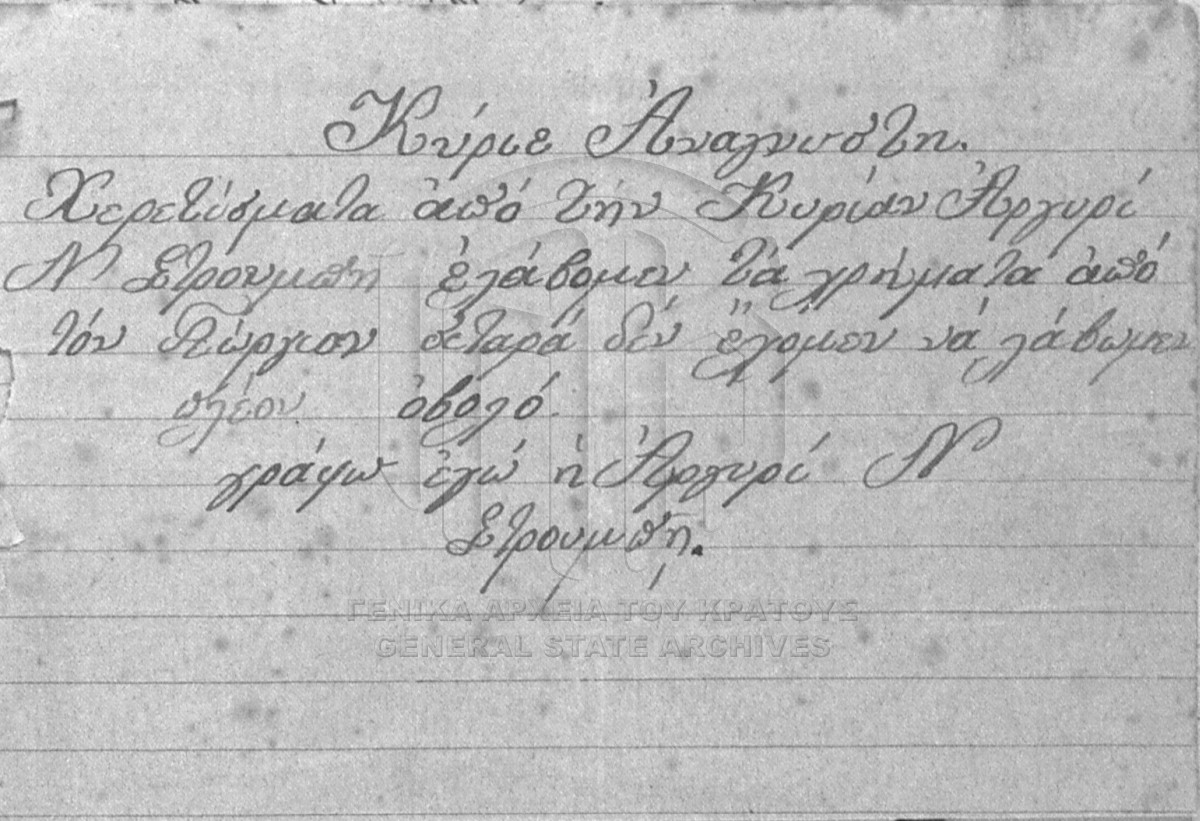 Κύριε Ἀναγνωστη.
Χερετύσματα ἀπό τήν Κυρίαν Ἀργυρί
Ν Στρουμπη ἐλάβομεν τά χρήματα ἀπό
τόν Γεώργιον σεταρά δέν ἔχομεν νά λάβωμεν
πλέον ὀβολό.
γράφω ἐγώ ἡ Ἀργυρί Ν
Στρουμπη.
ΓΕΝΙΚΑ ΑΡΧΕΙΑ ΤΟΥ ΚΡΑΤΟΥΣ
GENERAL STATE ARCHIVES